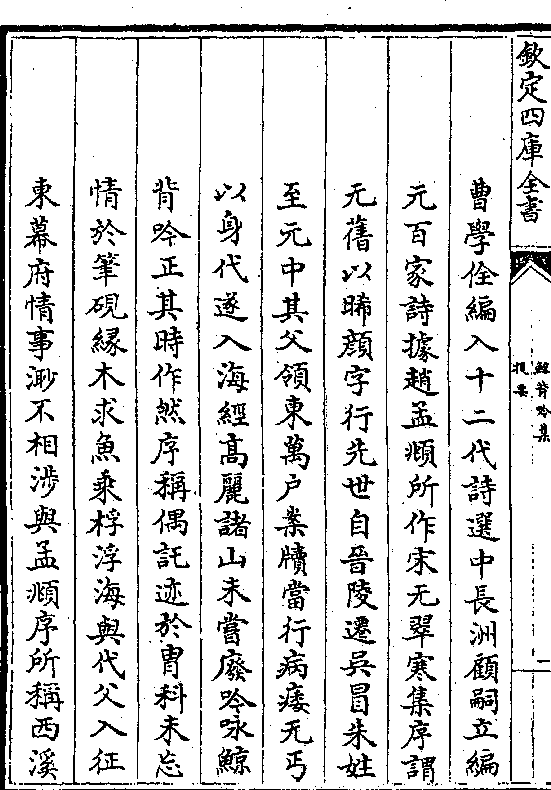 欽定四庫全書
鯨背吟集
提要
二
曹學佺編入十二代詩選中長洲顧嗣立編
元百家詩據趙孟頫所作宋无翠寒集序謂
无舊以晞顔字行先世自晉陵遷吳冒朱姓
至元中其父領東萬户案牘當行病痿无丐
以身代遂入海經髙麗諸山未嘗廢吟咏鯨
背吟正其時作然序稱偶託迹於胄科未忘
情於筆硯緣木求魚乘桴浮海與代父入征
東幕府情事渺不相涉與孟頫序所稱西溪